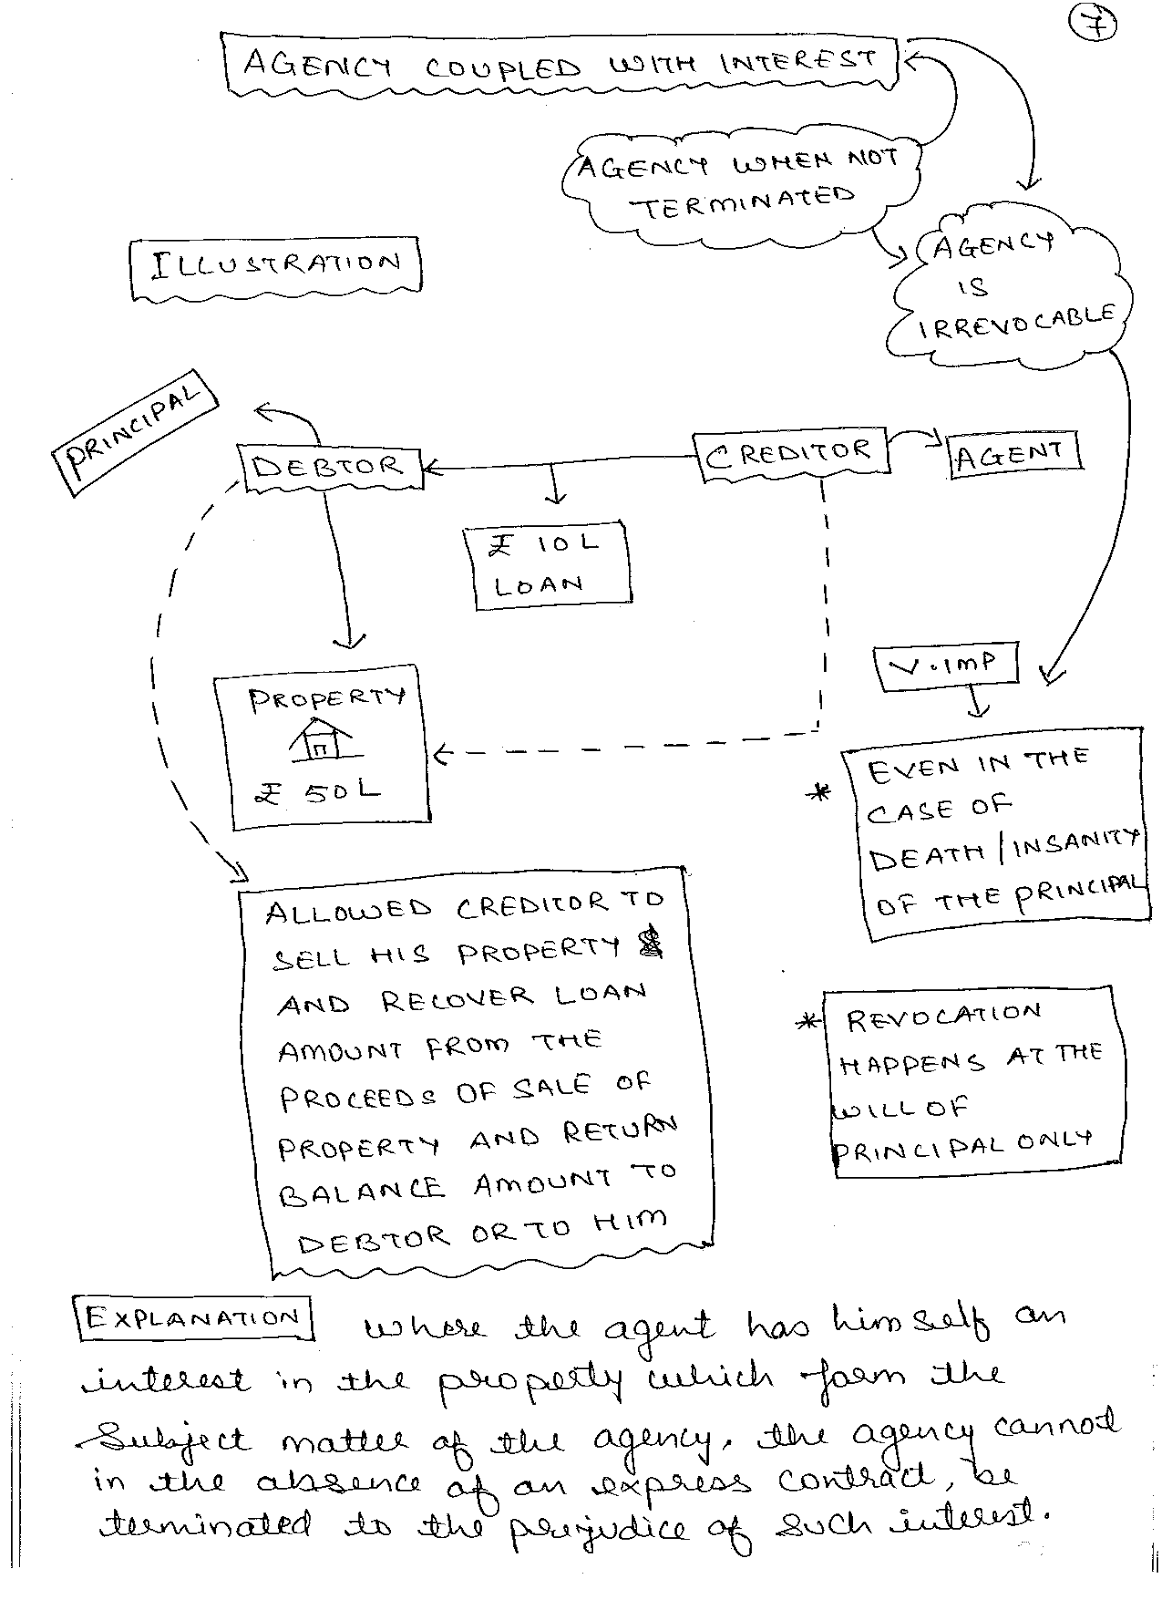 7
AGENCY COUPLED WITH INTEREST
AGENCY WHEN NOT
TERMINATED
AGENCY
IS
IRREVOCABLE
ILLUSTRATION
PRINCIPAL
DEBTOR
CREDITOR
AGENT
₹ 10L
LOAN
PROPERTY
₹ 50L
V.IMP
* EVEN IN THE
CASE OF
DEATH/INSANITY
OF THE PRINCIPAL
ALLOWED CREDITOR TO
SELL HIS PROPERTY
AND RECOVER LOAN
AMOUNT FROM THE
PROCEEDS OF SALE OF
PROPERTY AND RETURN
BALANCE AMOUNT TO
DEBTOR OR TO HIM
* REVOCATION
HAPPENS AT THE
WILL OF
PRINCIPAL ONLY
EXPLANATION where the agent has himself an
interest in the property which form the
Subject matter of the agency, the agency cannot
in the absence of an express contract, be
terminated to the prejudice of such interest.